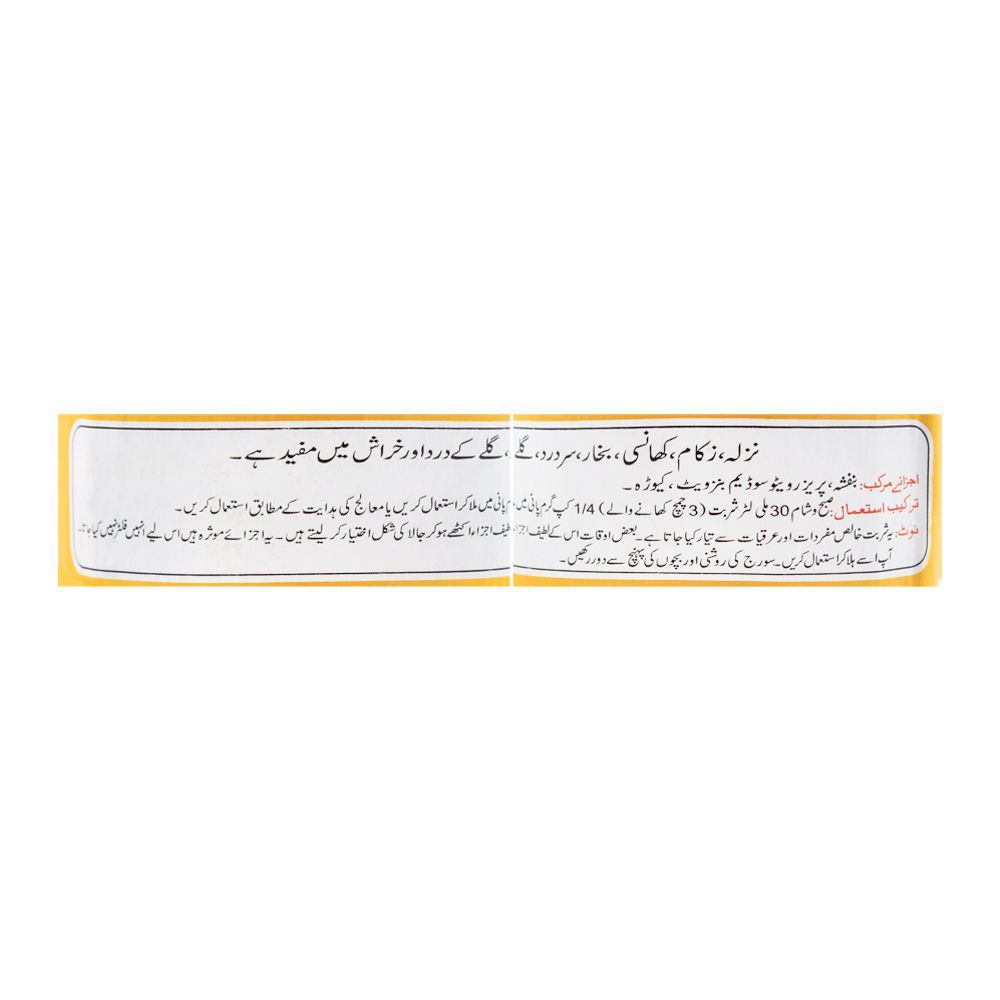 نزلہ، زکام، کھانسی، بخار، سردرد، گلے، گلے کے درد اور خراش میں مفید ہے۔
اجزائے مرکب: بنفشہ، پریزرویٹو سوڈیم بنزویٹ، کیوڑہ۔
ترکیب استعمال: صبح و شام 30 ملی لٹر شربت (3 چمچ کھانے والے) 1/4 کپ گرم پانی میں پانی میں ملا کر استعمال کریں یا معالج کی ہدایت کے مطابق استعمال کریں۔
نوٹ: یہ شربت خالص مفردات اور عرقیات سے تیار کیا جاتا ہے۔ بعض اوقات اس کے لطیف اجزاء اکٹھے ہو کر جالا کی شکل اختیار کر لیتے ہیں۔ یہ اجزائے موثرہ ہیں اس لیے انہیں فلٹر نہیں کیا جاتا۔
آپ اسے ہلا کر استعمال کریں۔ سورج کی روشنی اور بچوں کی پہنچ سے دور رکھیں۔